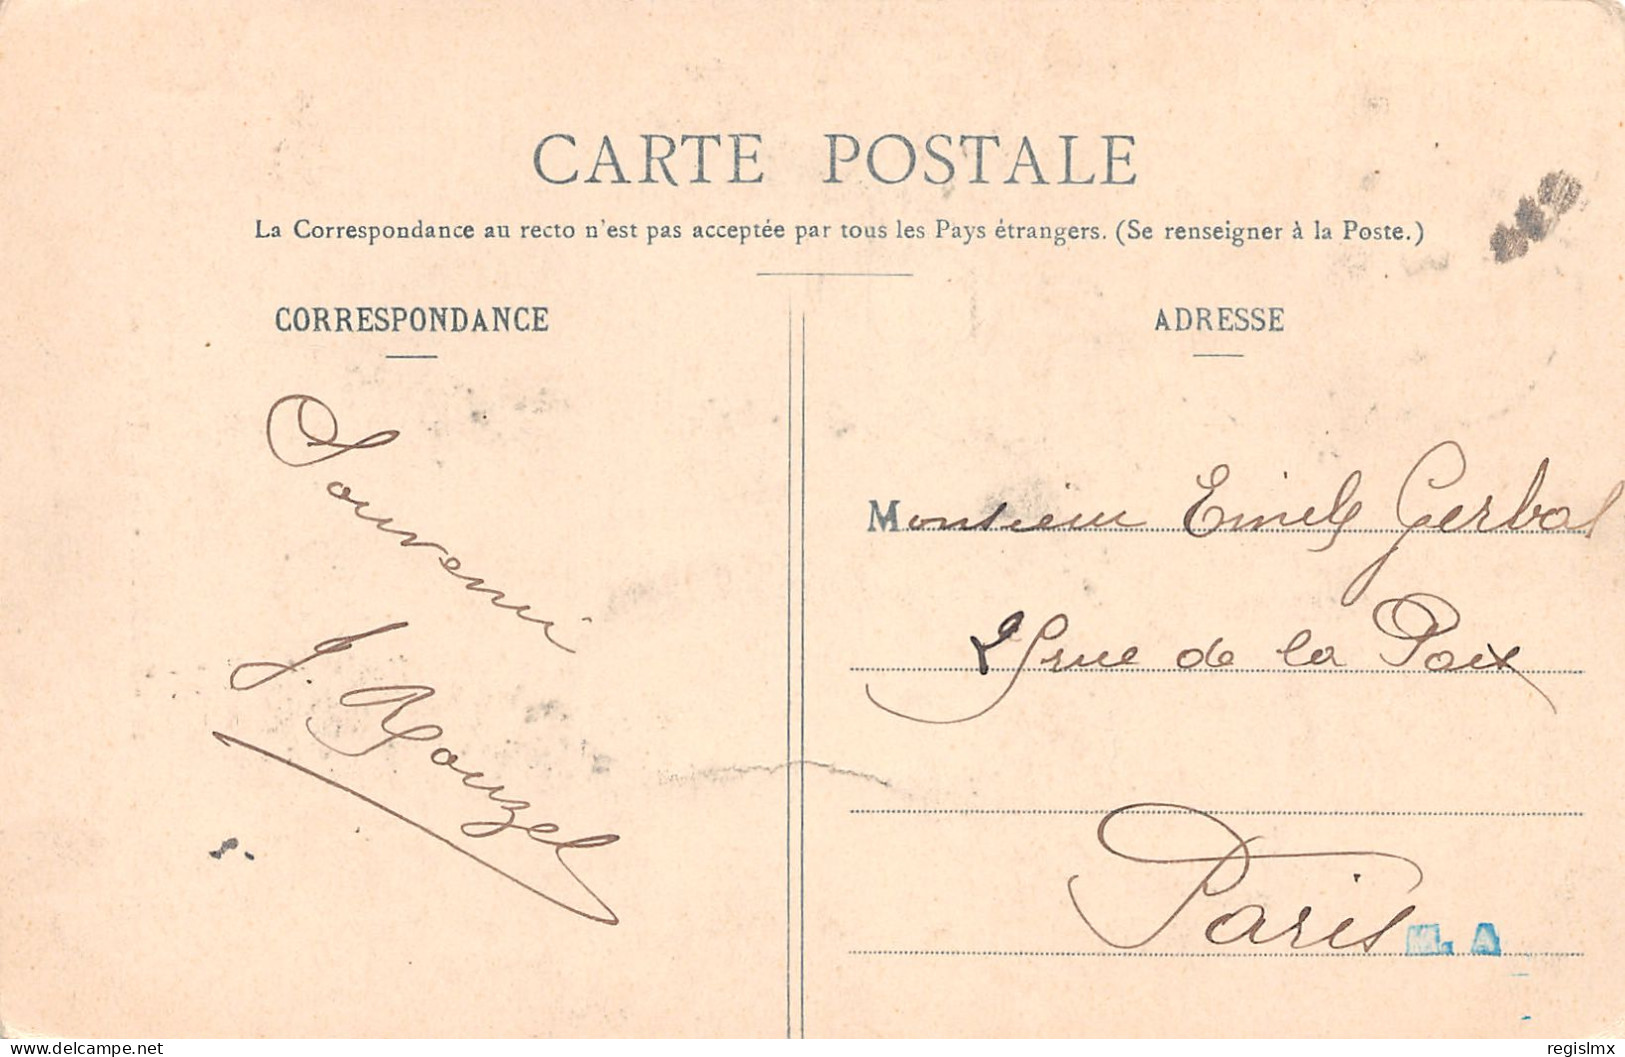 CARTE POSTALE
La Correspondance au recto n'est pas acceptée par tous les Pays étrangers. (Se renseigner à la Poste.)
CORRESPONDANCE
Souvenir
J. Rouzel
ADRESSE
Monsieur Emile Gerbal
rue de la Paix
Paris
M. A
delcampe.net
regislmx